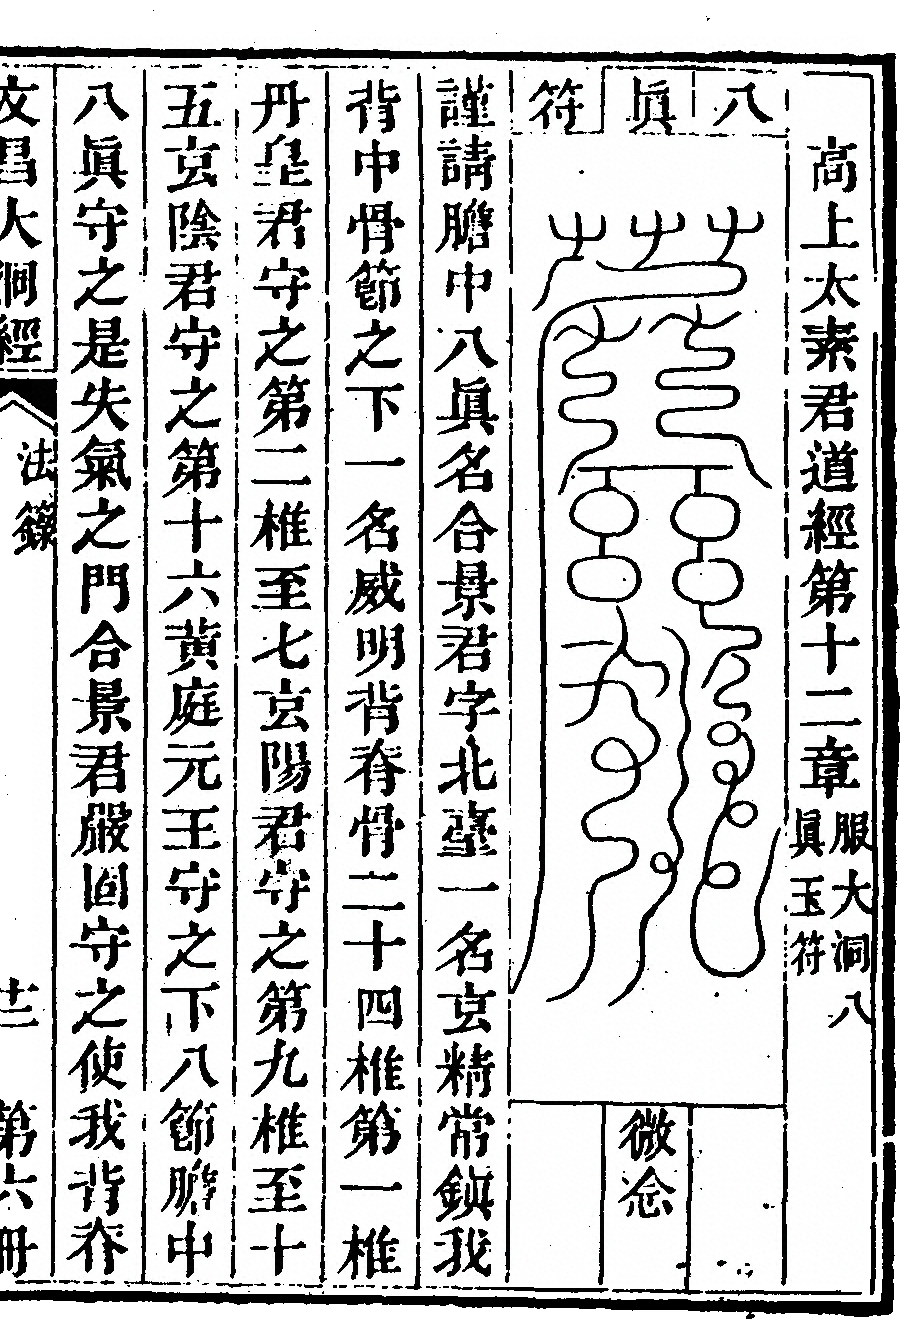 高上太素君道經第十二章
服大洞八
眞玉符
八眞符
微念
謹請膽中八眞名合景君字北臺一名玄精常鎭我
背中骨節之下一名威明背脊骨二十四椎第一椎
丹皇君守之第二椎至七玄陽君守之第九椎至十
五玄陰君守之第十六黃庭元王守之下八節膽中
八眞守之是失氣之門合景君嚴固守之使我背脊
文昌大洞經
法籙
卄二
第六冊